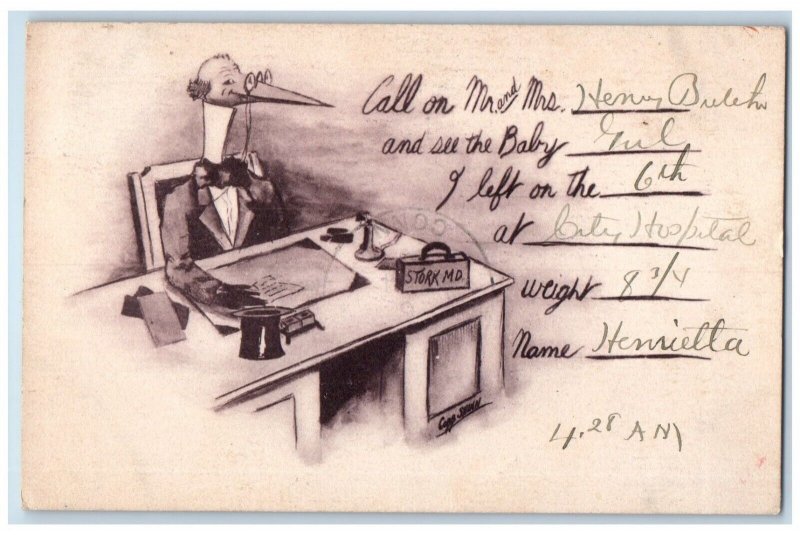 Call on Mr. and Mrs. Henry
and see the Baby Girl
I left on the 6th
at City Hospital
weight 8 3/4
Name Henrietta
4.28 AM
STORK M.D.